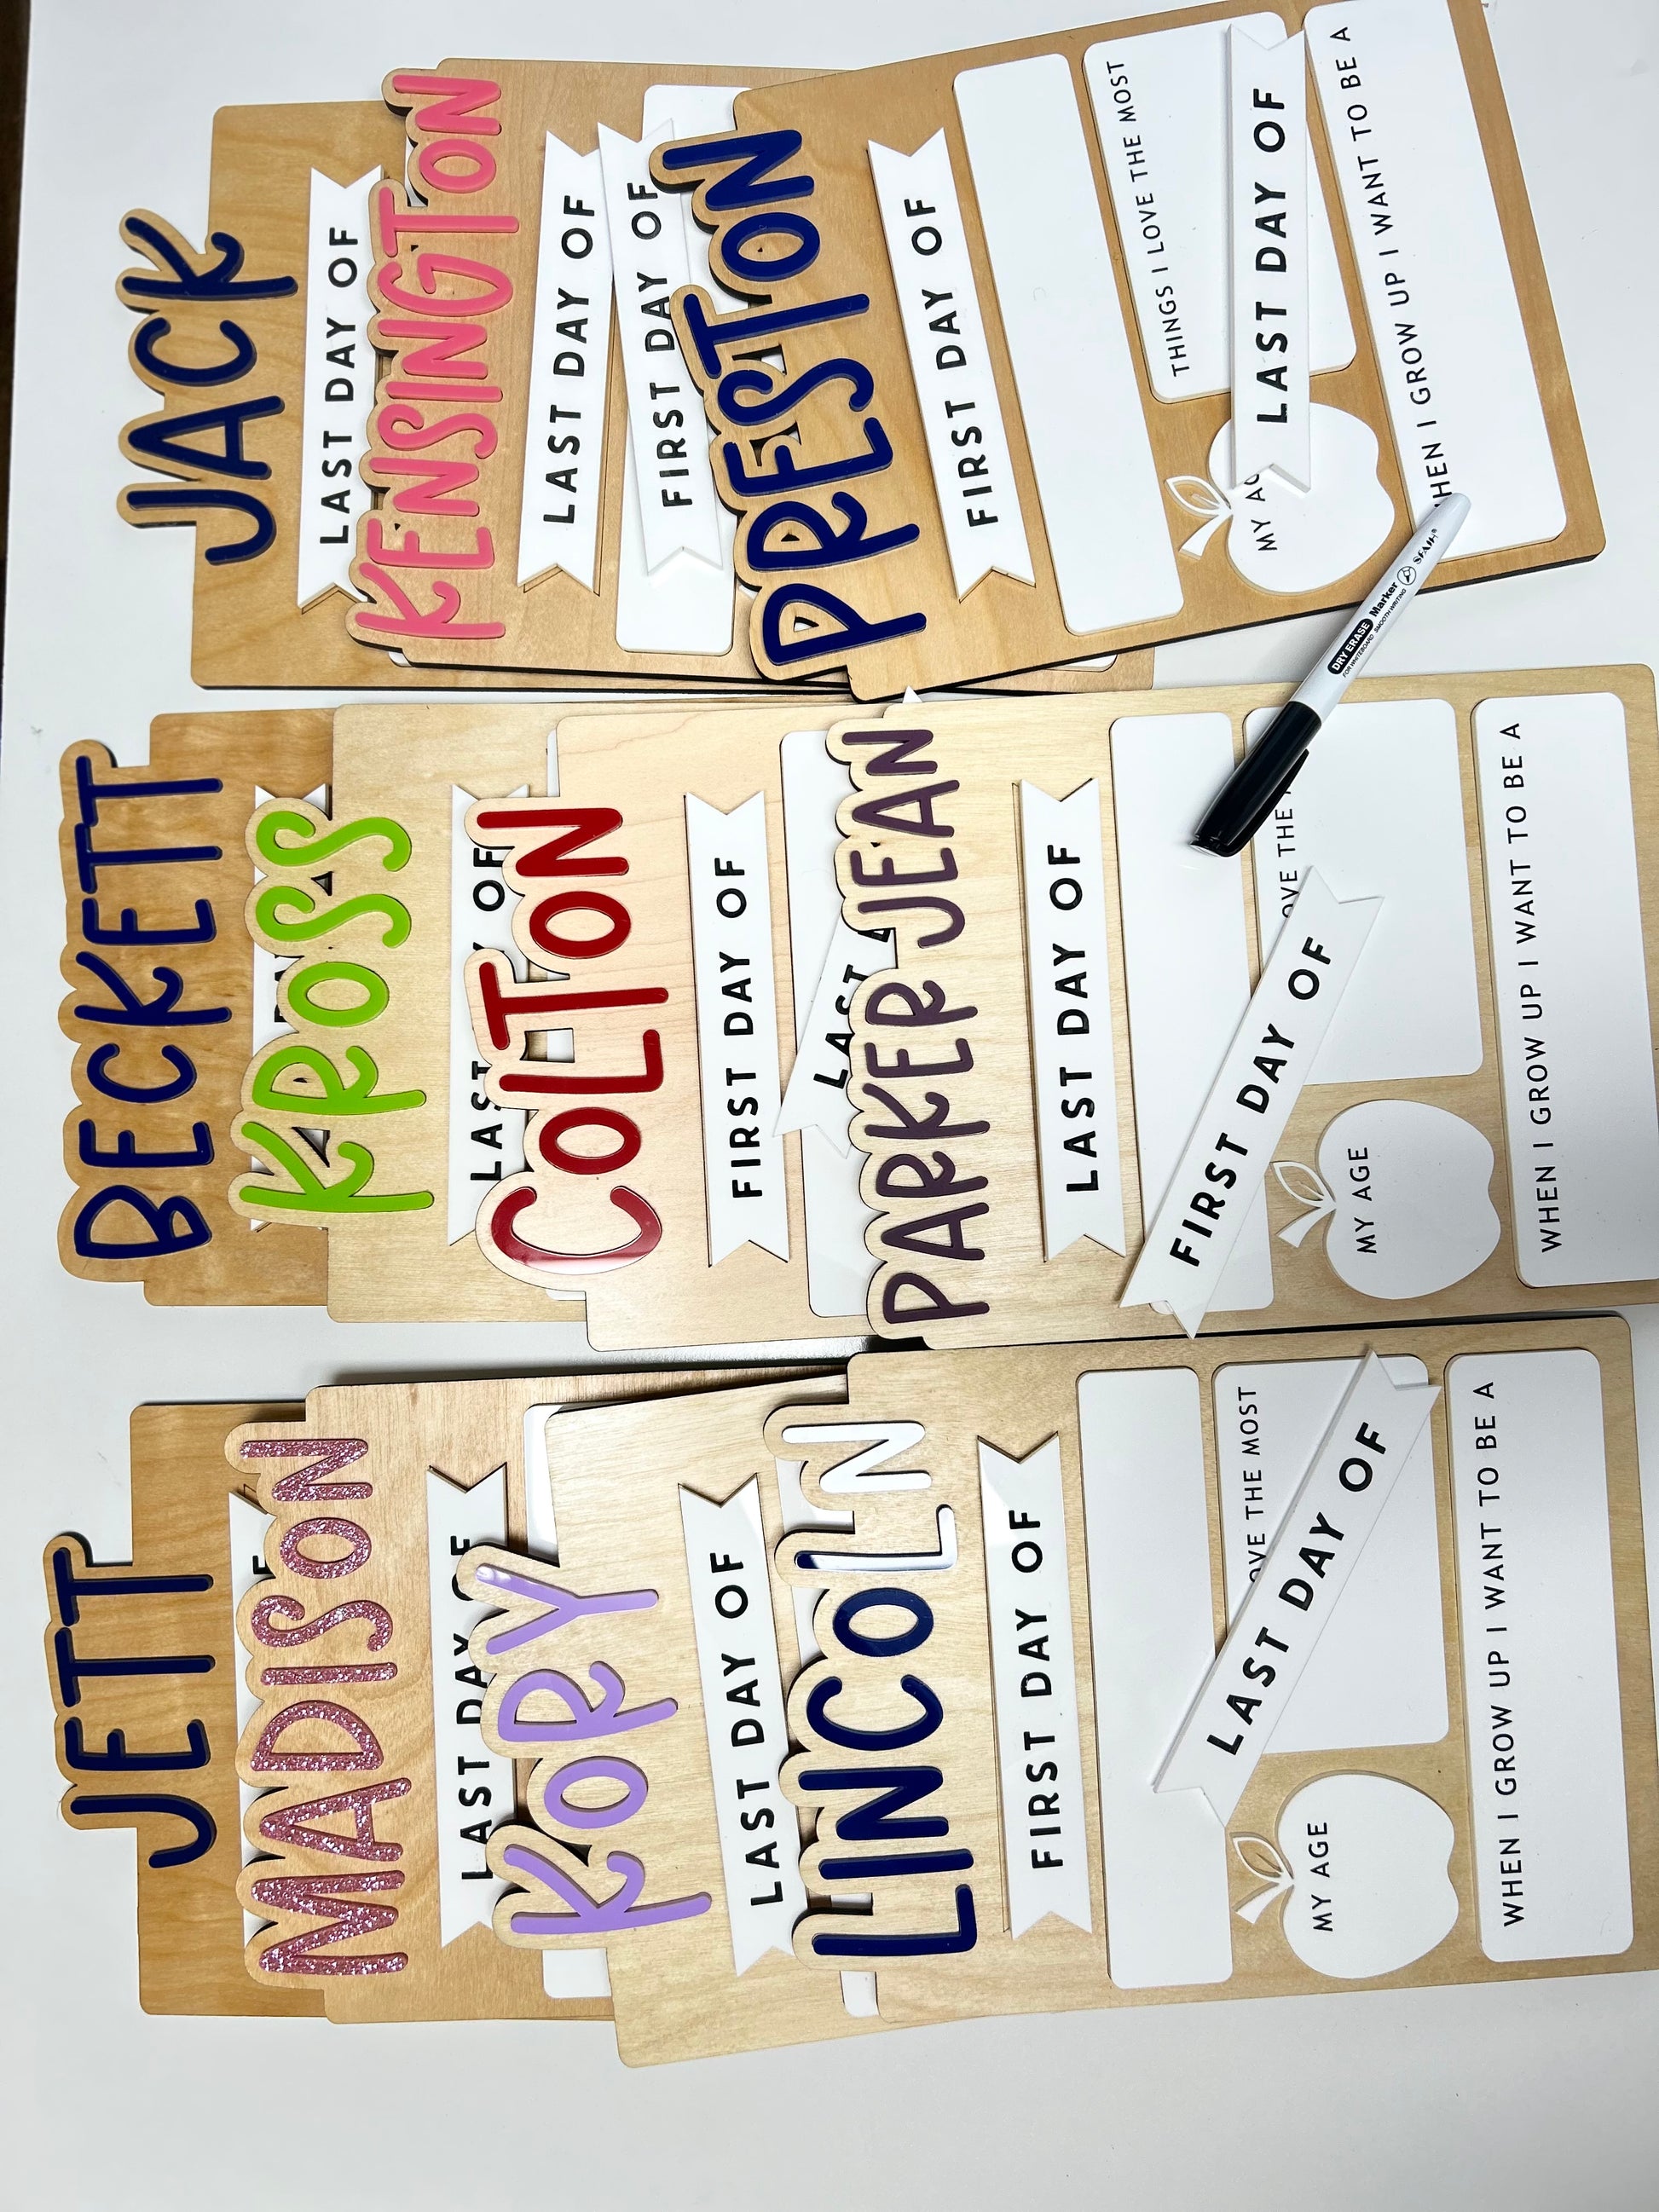 JETT
MADISON
LAST DAY OF
KORY
LAST DAY OF
LINCOLN
FIRST DAY OF
OVE THE MOST
LAST DAY OF
MY AGE
WHEN I GROW UP I WANT TO BE A
BECKETT
KROSS
LAST Y OF
COLTON
FIRST DAY OF
LAST
PARKER JEAN
LAST DAY OF
FIRST DAY OF
OVE THE
MY AGE
WHEN I GROW UP I WANT TO BE A
JACK
LAST DAY OF
KENSINGTON
LAST DAY OF
FIRST DAY OF
PRESTON
FIRST DAY OF
THINGS I LOVE THE MOST
LAST DAY OF
MY AG
HEN I GROW UP I WANT TO BE A
DRY ERASE Marker
FOR WHITEBOARD SMOOTH WRITING